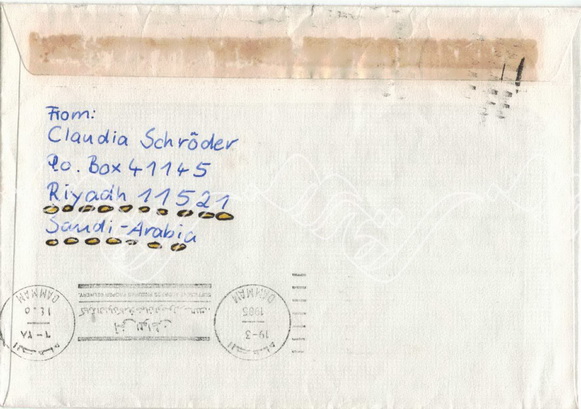 From:
Claudia Schröder
P.o. Box 41145
Riyadh 11521
Saudi-Arabia
DAMMAM
DAMMAM
1985
19-3
الدمام